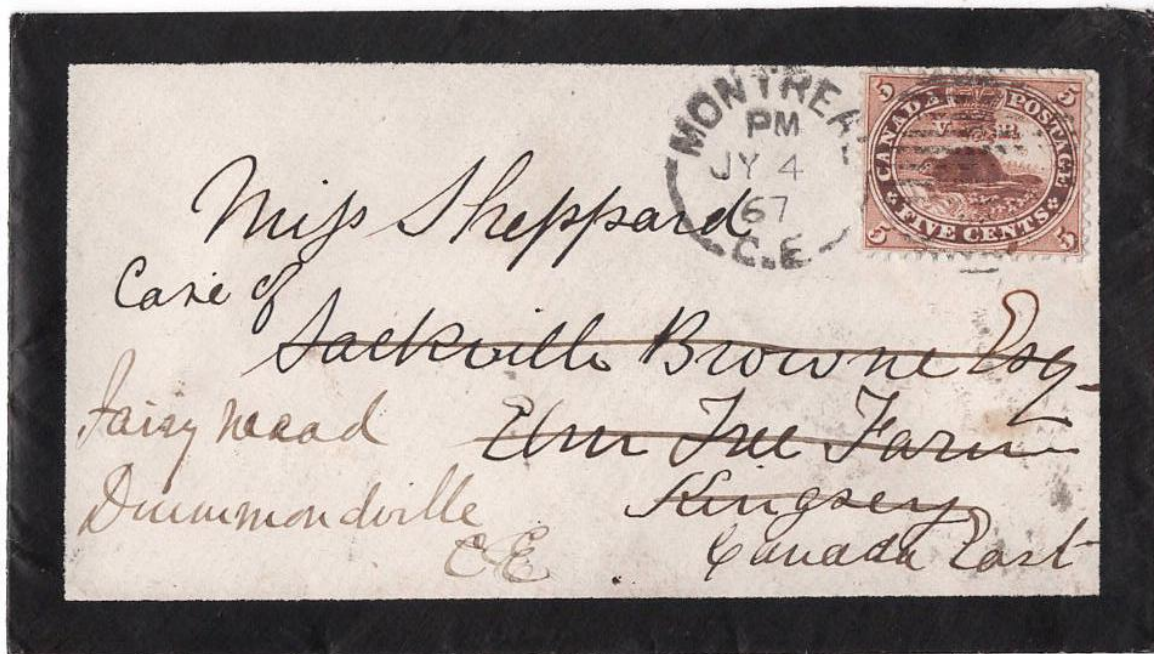 MONTREA
PM
JY 4
67
C.E
5 5
CANADA POSTAGE
V R
FIVE CENTS
5 5
Miss Sheppard
Care of
Sackville Browne Esq
Elm Tree Farm
Kingsey
Canada East
Drummondville
C.E